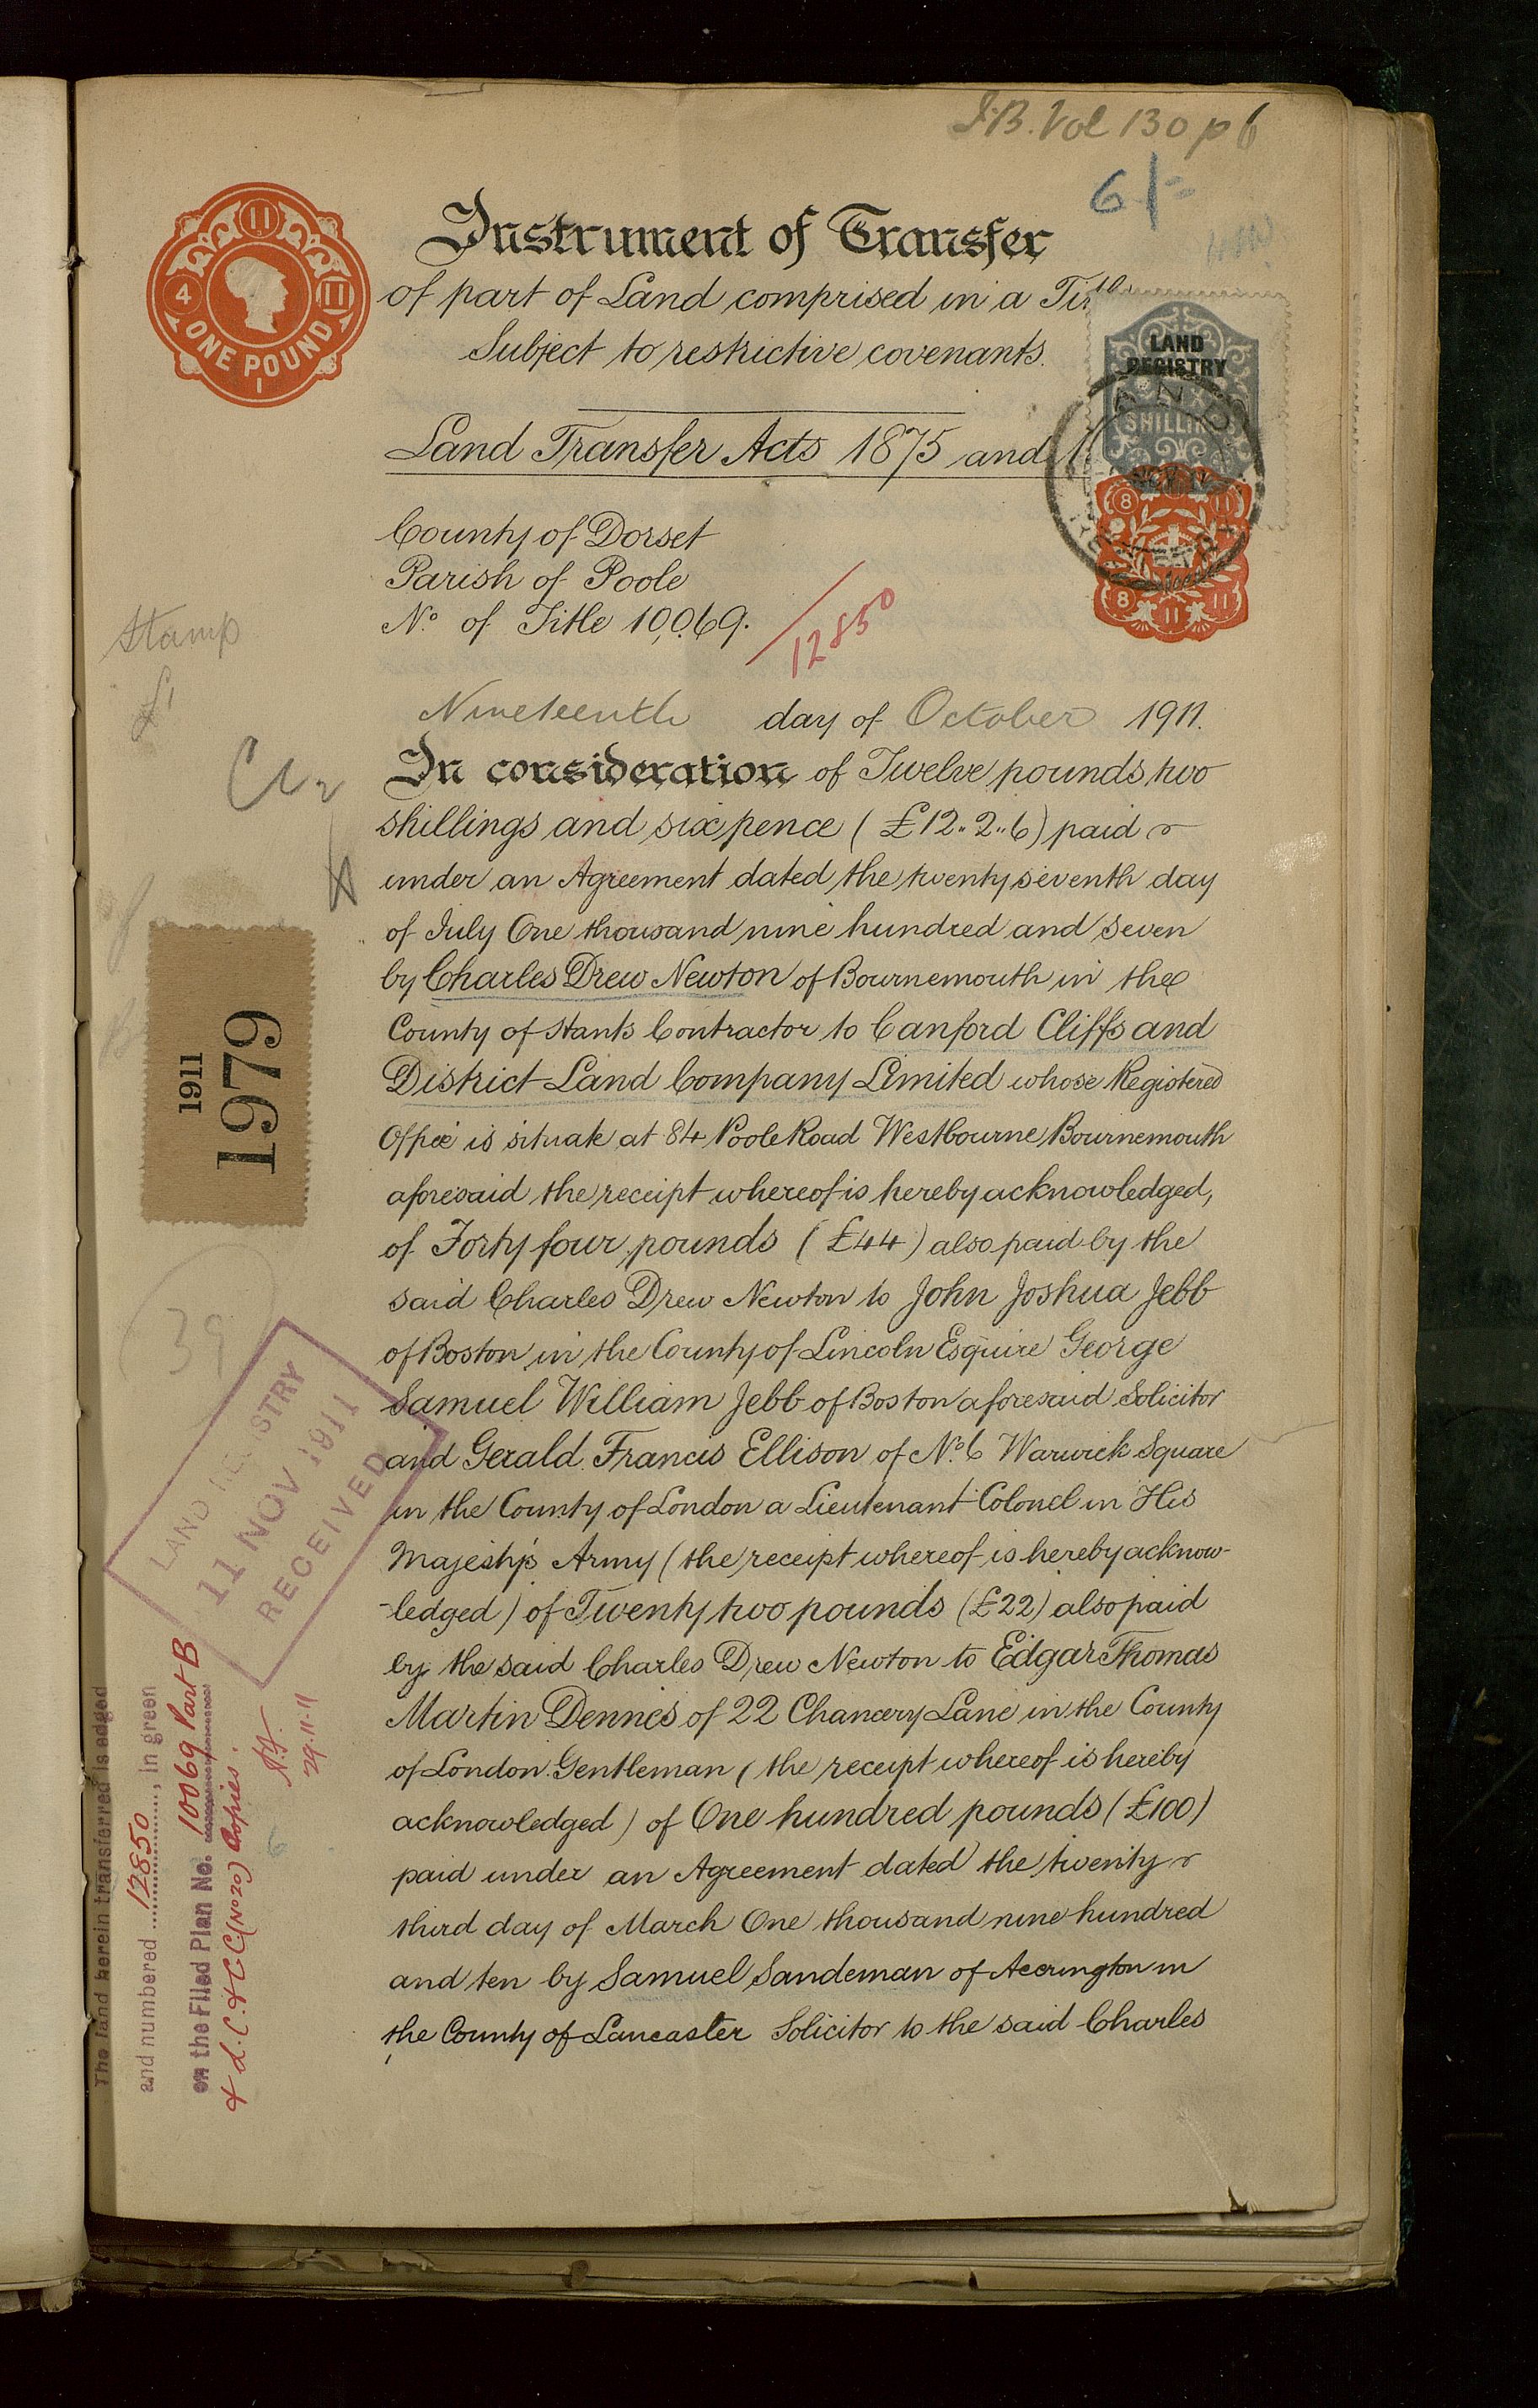 I.B. Vol 130 p 6
6/-
11
4
11
ONE POUND
1
Instrument of Transfer
of part of Land comprised in a Title
Subject to restrictive covenants.
LAND
REGISTRY
SHILLING
Land Transfer Acts 1875 and 1
8
11
8
11
11
County of Dorset
Parish of Poole
No. of Title 10,069.
12850
Stamp
£1
Nineteenth day of October 1911.
In consideration of Twelve pounds two
shillings and six pence (£12..2..6) paid
under an Agreement dated the twenty seventh day
of July One thousand nine hundred and seven
by Charles Drew Newton of Bournemouth in the
County of Hants Contractor to Canford Cliffs and
District Land Company Limited whose Registered
Office is situate at 84 Poole Road Westbourne Bournemouth
aforesaid the receipt whereof is hereby acknowledged,
of Forty four pounds (£44) also paid by the
said Charles Drew Newton to John Joshua Jebb
of Boston in the County of Lincoln Esquire George
Samuel William Jebb of Boston aforesaid Solicitor
and Gerald Francis Ellison of No. 6 Warwick Square
in the County of London a Lieutenant Colonel in His
Majesty's Army (the receipt whereof is hereby acknow-
-ledged) of Twenty two pounds (£22) also paid
by the said Charles Drew Newton to Edgar Thomas
Martin Dennes of 22 Chancery Lane in the County
of London Gentleman (the receipt whereof is hereby
acknowledged) of One hundred pounds (£100)
paid under an Agreement dated the twenty
third day of March One thousand nine hundred
and ten by Samuel Sandeman of Accrington in
the County of Lancaster Solicitor to the said Charles
1911
1979
39
LAND REGISTRY
11 NOV 1911
RECEIVED
The land herein transferred is edged
and numbered 12850, in green
on the Filed Plan No. 10069 Part B
& L.C. & C.C. (No 20) Copies.
29.11.11